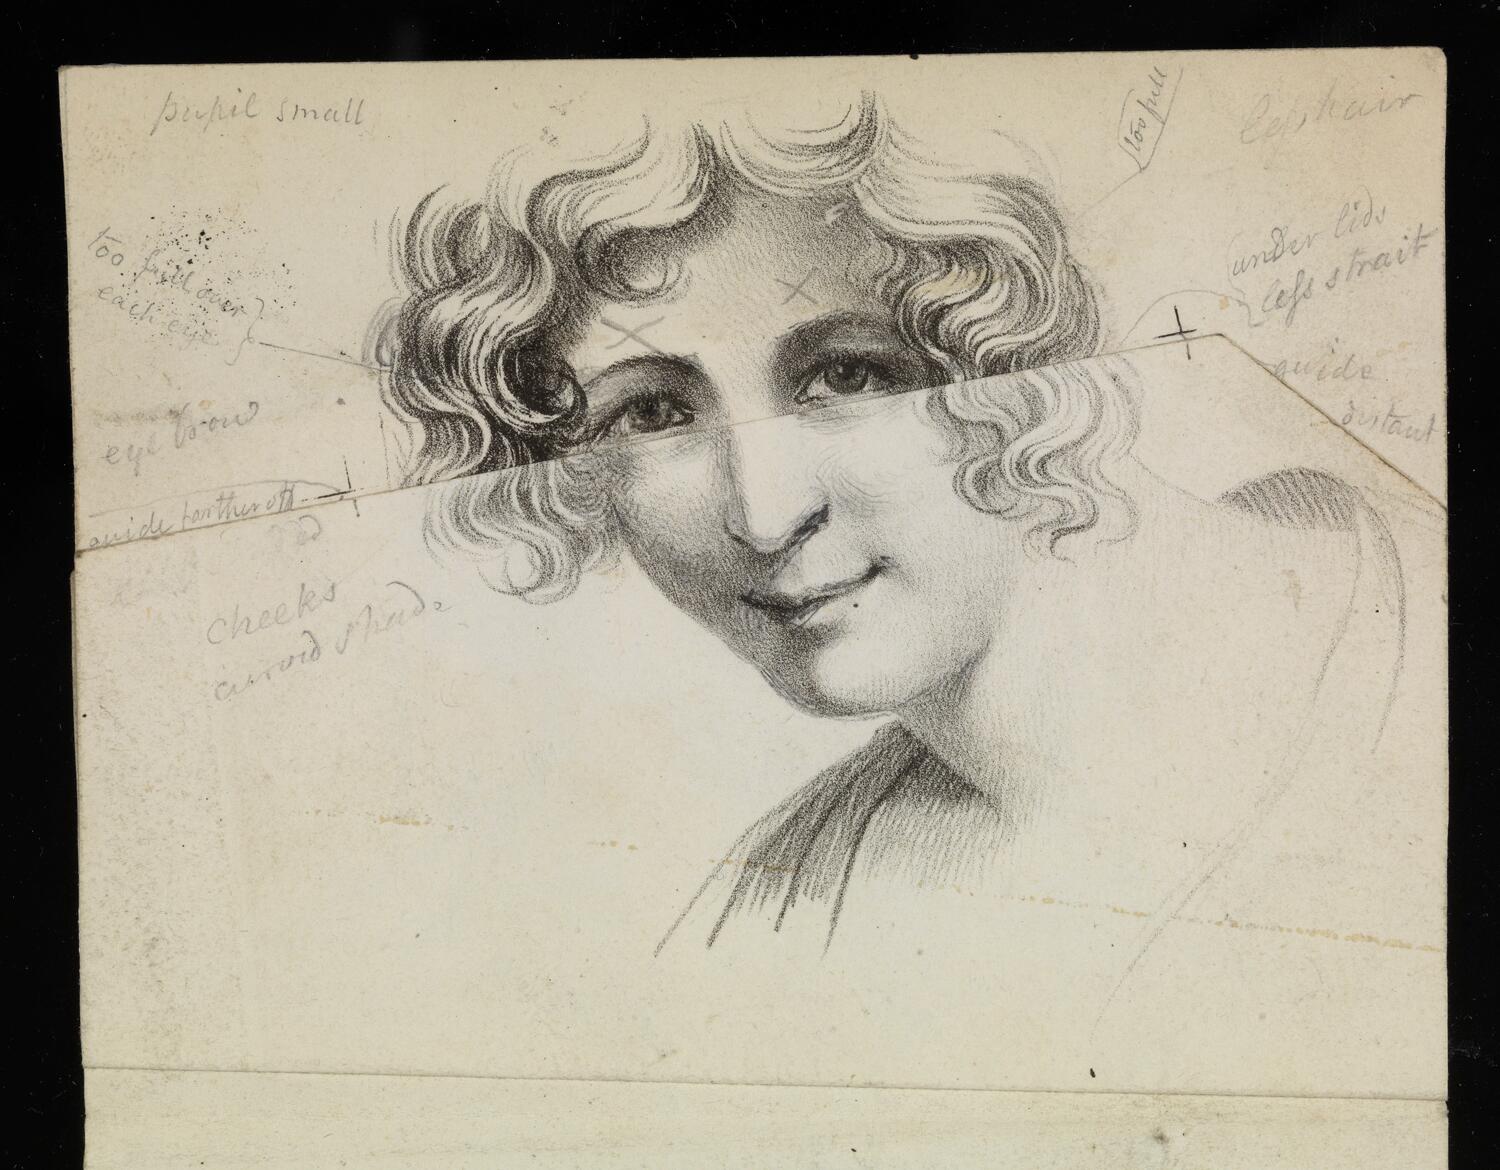 pupil small
too full
less hair
too full over
each eye
under lids
less strait
guide
distant
eye brow
guide farther off
cheeks
curvid shade